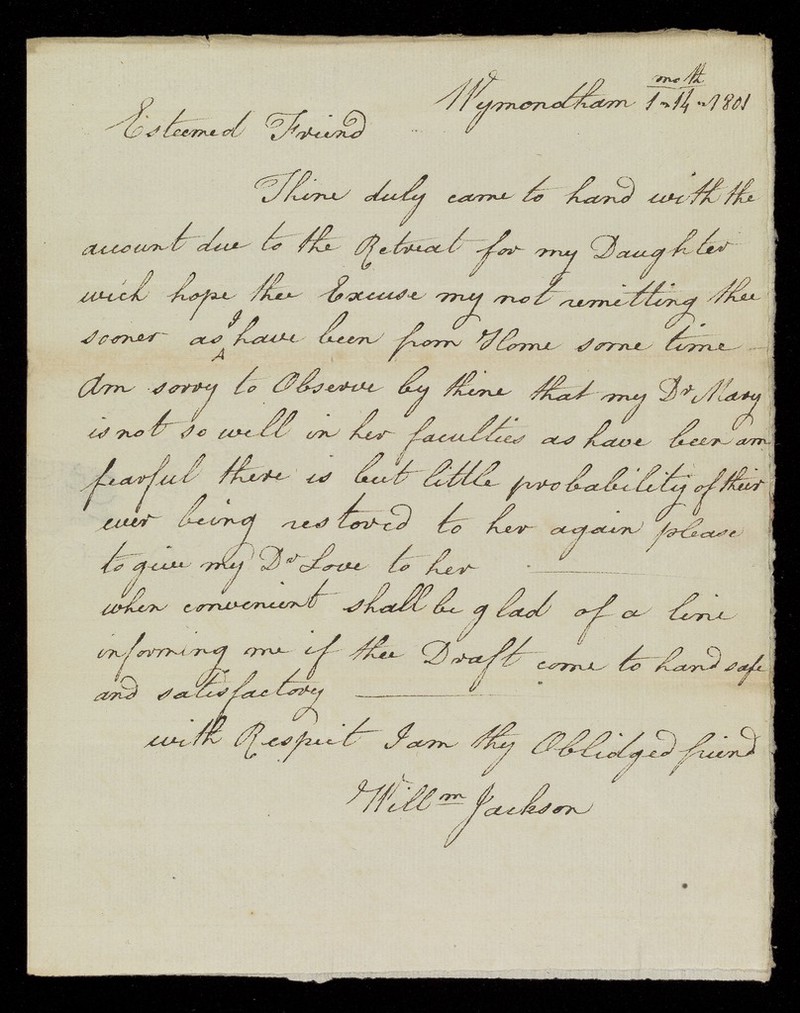 Wymondham 1 mo 14th 1801
Esteemed Friend
Thine duly came to hand with the
account due to the Retreat for my Daughter
wich hope thee Excuse my not remitting thee
sooner as I have been from Home some time —
Am sorry to Observe by thine that my Dr Mary
is not so well in her faculties as have been am
fearful there is but little probability of their
ever being restored to her again please
to give my Dr Love to her —
when convenient shall be glad of a line
informing me if thee Draft come to hand safe
and satisfactory —
with Respect I am thy Oblidged friend
Willm Jackson